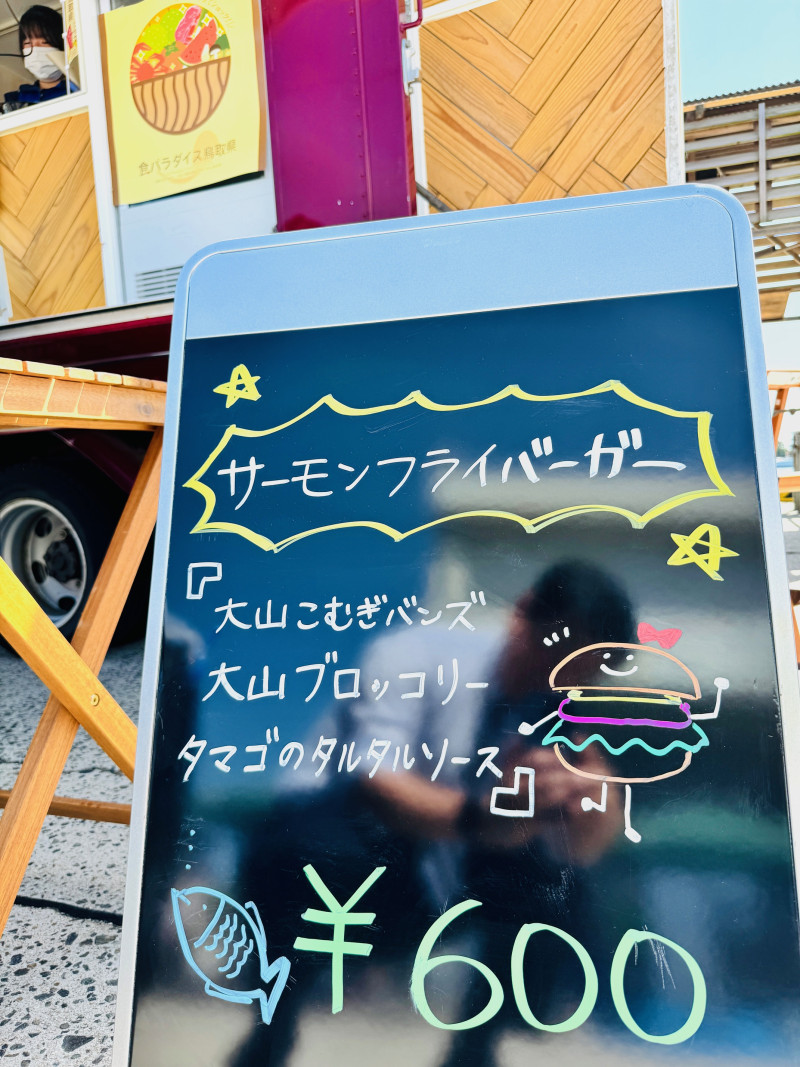 食パラダイス鳥取県
サーモンフライバーガー
『大山こむぎバンズ
大山ブロッコリー
タマゴのタルタルソース』
¥600